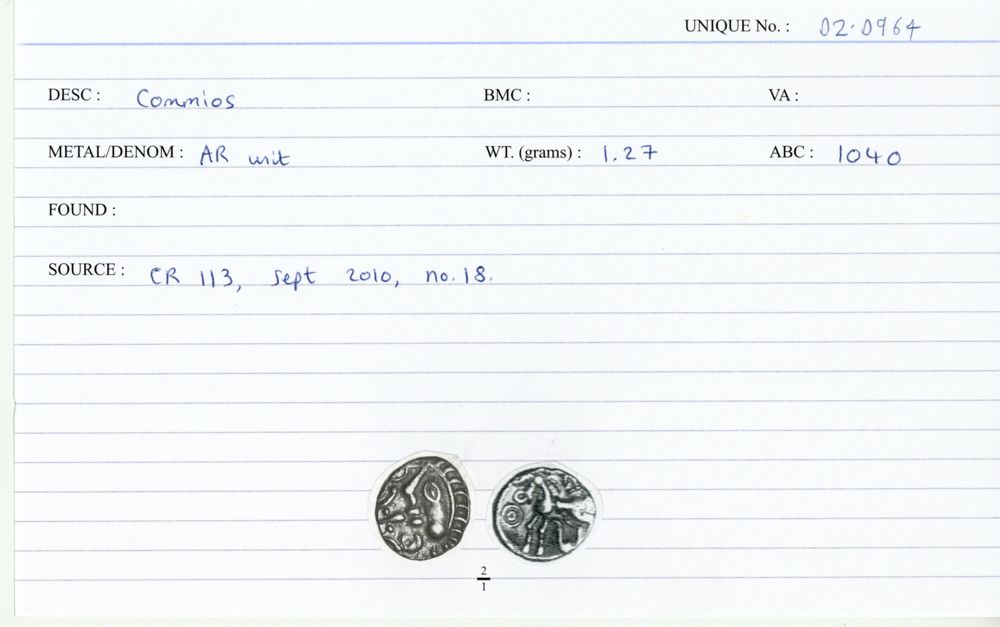 UNIQUE No. : 02.0964
DESC : Commios BMC : VA :
METAL/DENOM : AR unit WT. (grams) : 1.27 ABC : 1040
FOUND :
SOURCE : CR 113, Sept 2010, no. 18.
2
1